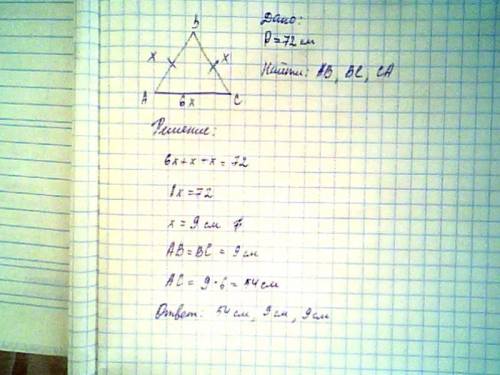 B
Дано:
x x
P=72 см
A 6x C
Найти: AB, BC, CA
Решение:
6x+x+x=72
8x=72
x=9 см
AB=BC=9 см
AC=9·6=54 см
Ответ: 54 см, 9 см, 9 см